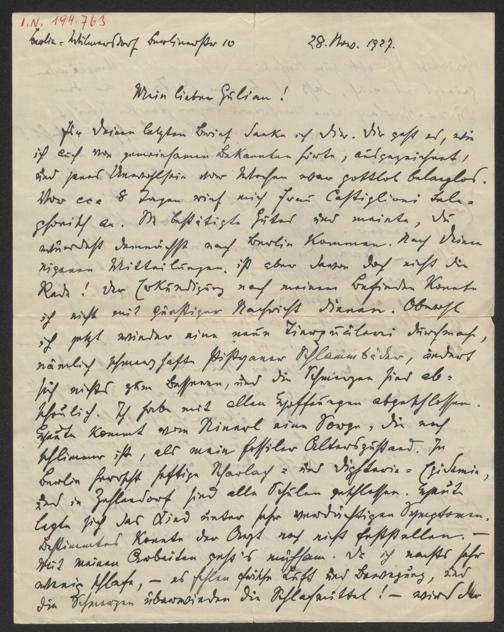 I.N. 194.763
Berlin-Wilmersdorf Berlinerstr 10 28. Nov. 1927.
Mein lieber Gulian!
Für Deinen letzten Brief danke ich Dir. Dir geht es, wie
ich auch von gemeinsamen Bekannten hörte, ausgezeichnet,
und jenes Unwohlsein vor Wochen war gottlob belanglos.
Vor cca 8 Tagen rief mich Frau Castiglioni tele-
phonisch an. Sie bestätigte Gutes und meinte, Du
würdest demnächst nach Berlin kommen. Nach Deinen
eigenen Mitteilungen ist aber davon doch nicht die
Rede! Der Erkundigung nach meinem Befinden konnte
ich nicht mit günstiger Nachricht dienen. Obwohl
ich jetzt wieder eine neue durchmach,
nämlich schmerzhafte Pistyaner Schlammbäder, ändert
sich nichts zum Besseren, und die Schmerzen sind ab-
scheulich. Ich habe mit allen Hoffnungen abgeschlossen.
Heute kommt vom eine Sorge, die noch
schlimmer ist, als mein Alterszustand. In
Berlin herrscht heftige Scharlach- und Diphterie-Epidemie,
und in Zehlendorf sind alle Schulen geschlossen. Heute
legte sich das Kind unter sehr verdächtigen Symptomen.
Bestimmtes konnte der Arzt noch nicht feststellen. –
Mit meinen Arbeiten geht's mühsam. Da ich nachts sehr
wenig schlafe, – es fehlen frische Luft und Bewegung, und
die Schmerzen überwinden die Schlafmittel! – wird der